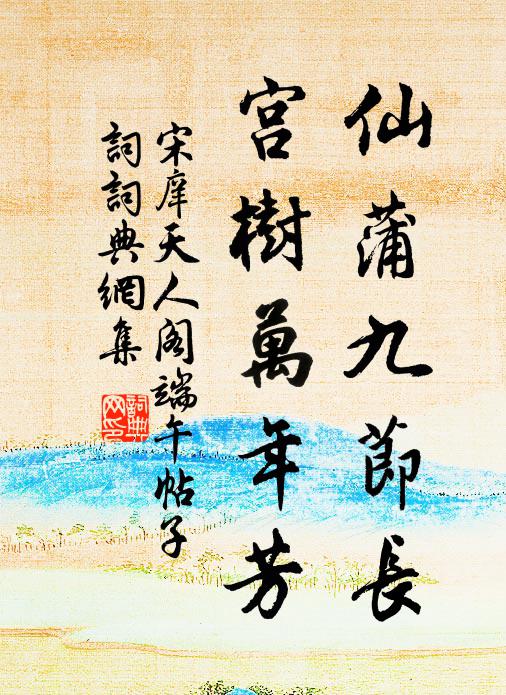 仙蒲九節長
宮樹萬年芳
宋庠天人閣端午帖子
詞詞典網集